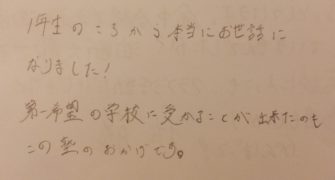 1年生のころから本当にお世話に
なりました!
第一希望の学校に受かることが出来たのも
この塾のおかげです。